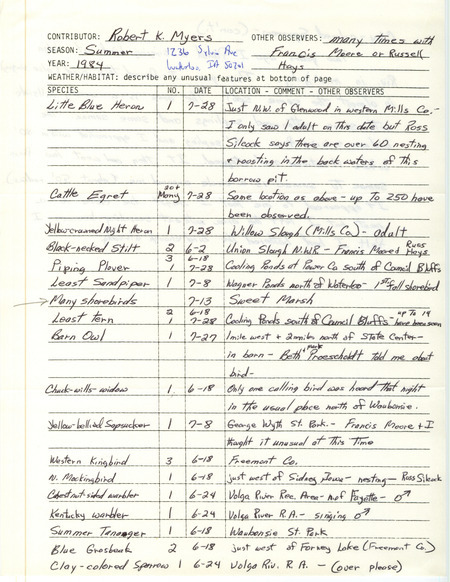 CONTRIBUTOR: Robert K. Myers OTHER OBSERVERS: many times with
SEASON: Summer 1236 Sylvia Ave Francis Moore or Russell
YEAR: 1984 Waterloo, IA 50701 Hays
WEATHER/HABITAT: describe any unusual features at bottom of page
SPECIES NO. DATE LOCATION - COMMENT - OTHER OBSERVERS
Little Blue Heron 1 7-28 Just N.W. of Glenwood in western Mills Co. -
I only saw 1 adult on this date but Ross
Silcock says there are over 60 nesting
& roosting in the back waters of this
borrow pit.
Cattle Egret 30+ Many 7-28 Same location as above - up to 250 have
been observed.
Yellow-crowned Night Heron 1 7-28 Willow Slough (Mills Co) - adult
Black-necked Stilt 2 6-2 Union Slough N.W.R - Francis Moore & Russ Hays
Piping Plover 3 6-18 1 7-28 Cooling Ponds at Power Co south of Council Bluffs
Least Sandpiper 1 7-8 Wagner Ponds north of Waterloo - 1st fall shorebird
Many shorebirds 7-13 Sweet Marsh
Least Tern 2 6-18 1 7-28 Cooling Ponds south of Council Bluffs - up to 14 have been seen
Barn Owl 1 7-27 1 mile west & 2 miles north of State Center -
in barn - Beth & Mark Proescholdt told me about
bird -
Chuck-wills-widow 1 6-18 Only one calling bird was heard that night
in the usual place north of Waubonsie.
Yellow-bellied Sapsucker 1 7-8 George Wyth St. Park. - Francis Moore & I
thought it unusual at this time
Western Kingbird 3 6-18 Freemont Co.
N. Mockingbird 1 6-18 just west of Sidney Iowa - nesting - Ross Silcock
Chestnut sided warbler 1 6-24 Volga River Rec. Area - n. of Fayette - ♂
Kentucky warbler 1 6-24 Volga River R.A. - singing ♂
Summer Tanager 1 6-18 Waubonsie St. Park
Blue Grosbeak 2 6-18 just west of Forney Lake (Freemont Co.)
Clay-colored Sparrow 1 6-24 Volga Riv. R.A. - (over please)